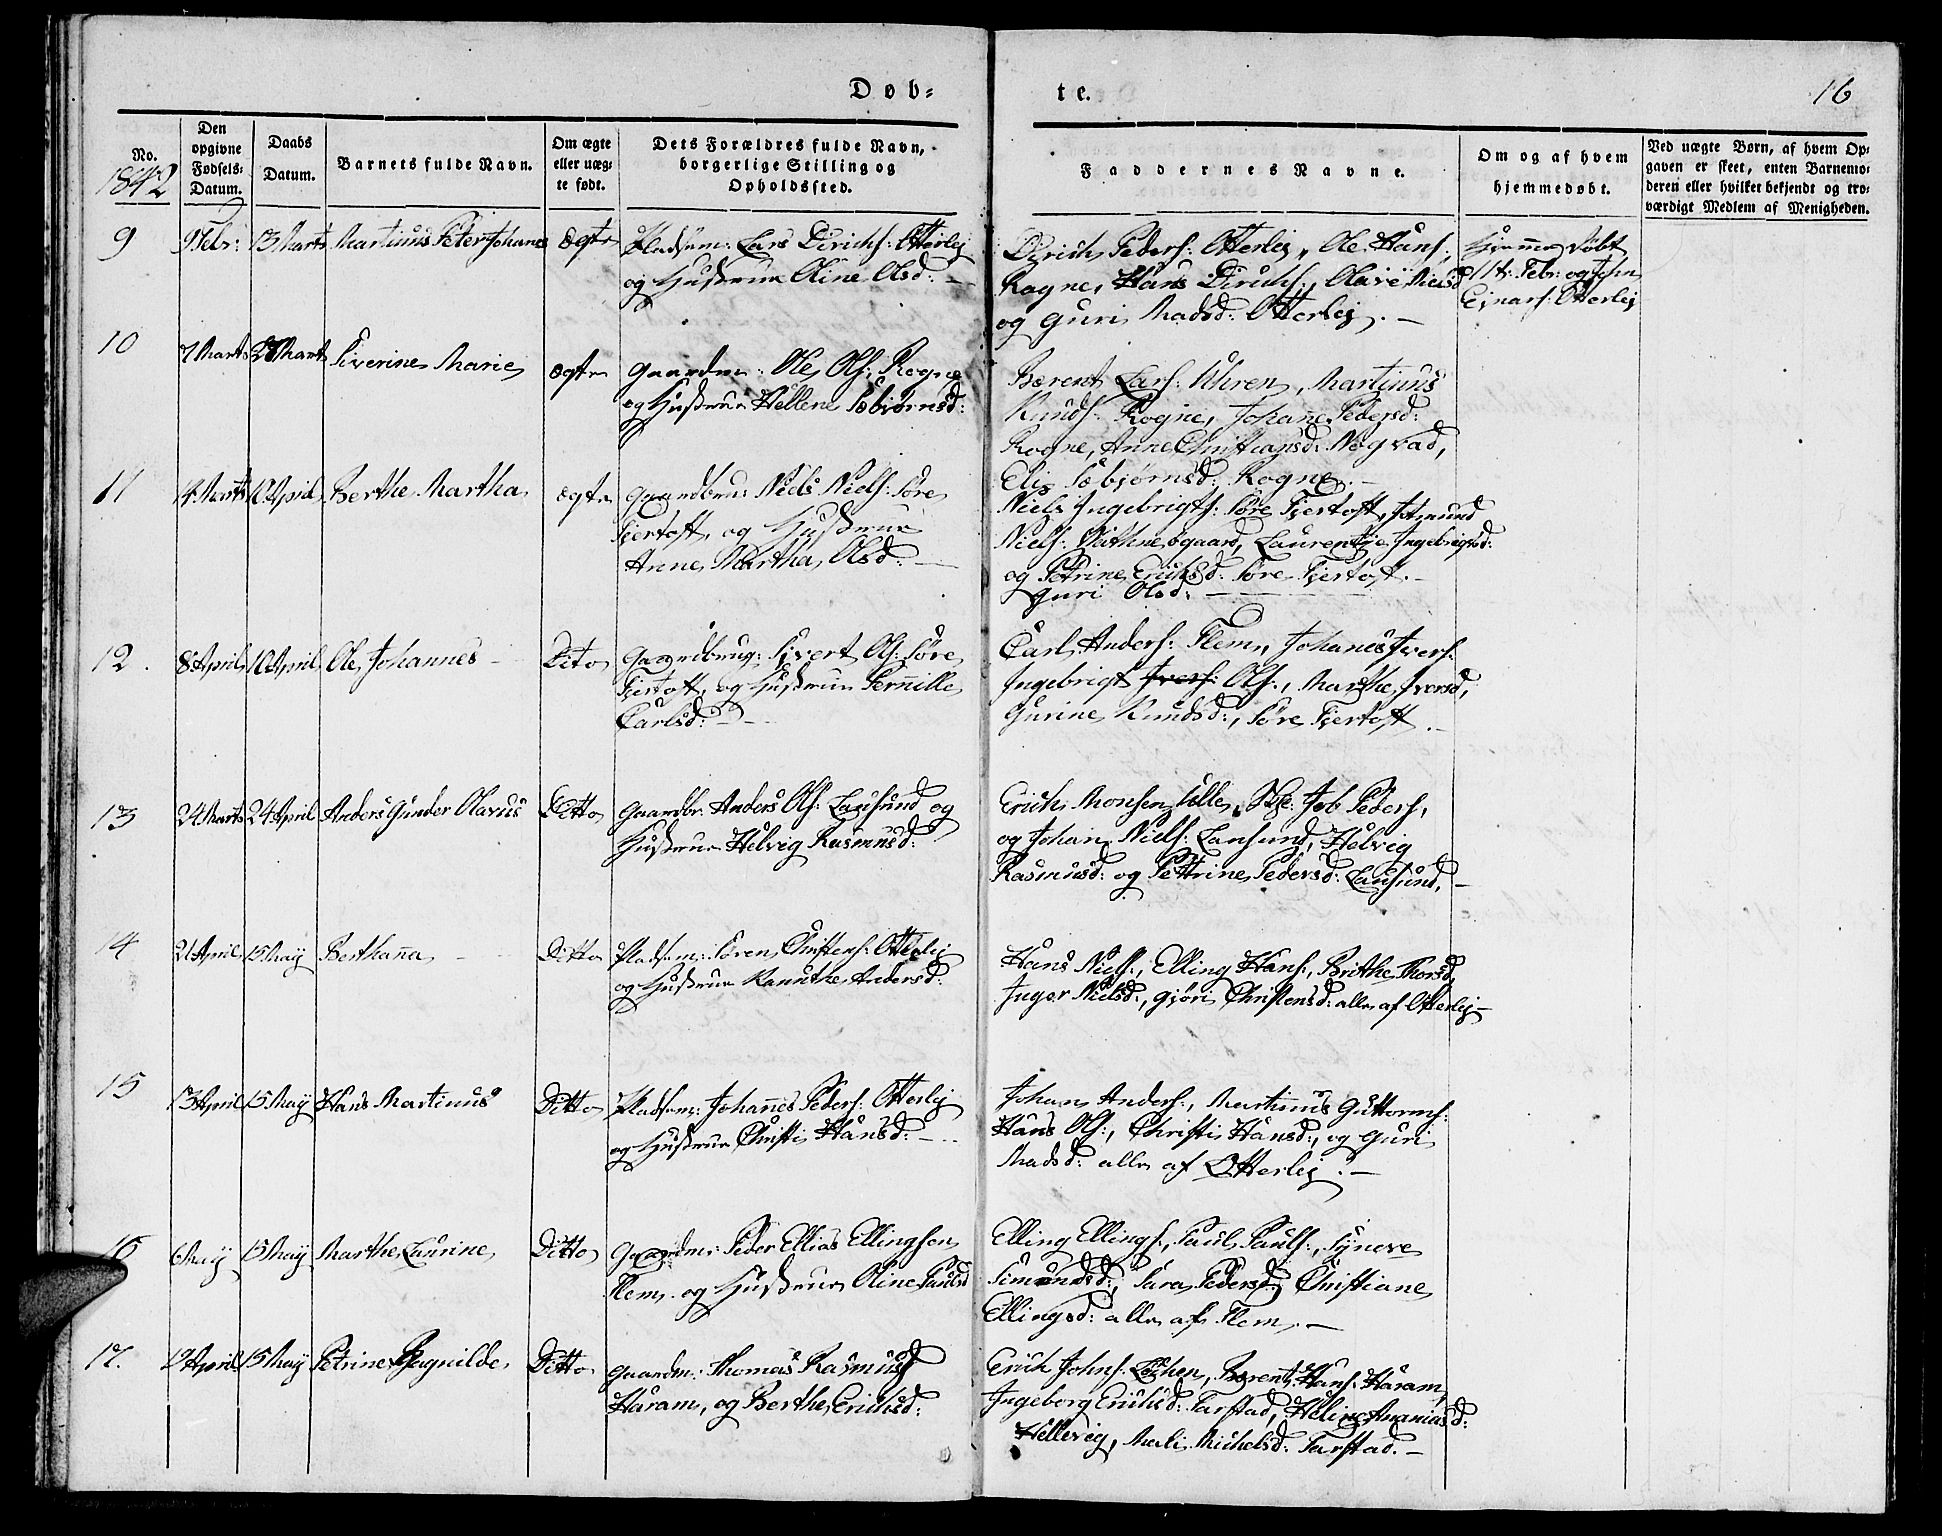 Døb=
te.
16
No.
1842
Den opgivne Fødsels-Datum.
Daabs Datum.
Barnets fulde Navn.
Om ægte eller uæg-te født.
Dets Forældres fulde Navn, borgerlige Stilling og Opholdssted.
Faddernes Navne.
Om og af hvem hjemmedøbt.
Ved uægte Børn, af hvem Op-gaven er skeet, enten Barnemo-deren eller hvilket bekjendt og tro-værdigt Medlem af Menigheden.
9 9 Febr: 13 Marts Martinus Peter Johanes ægte Pladsm: Lars Dirichs: Otterlej
og Hustrue Oline Olsd: —
Dirich Peders: Otterlej, Ole Hans:
Rogne, Hans Dirichs:, Olave Nielsd
og Guri Madsd: Otterlej. —
Hjemme døbt
11te Febr: og John
Ejnars: Otterlej
10 7 Marts Marts Siverine Marie ægte Gaardm: Ole Ols: Rogne
og Hustrue Hellene Sæbjørnsd:
Bærent Lars: Uhren, Martinus
Knuds: Rogne, Johanne Pedersd:
Rogne, Anne Christiansd: Nogvad,
Elis Sæbjørnsd: Rogne. —
11 14 Marts 10 April Berthe Martha ægte Gaardbru: Niels Niels: Søre
Fjertoft, og Hustrue
Anne Martha Olsd: —
Niels Ingebrigts: Søre Fjertoft,
Niels: Laurentje Ingebrigtsd:
og Petrine Erichsd: Søre Fjertoft. —
Guri Olsd: —
12. 8 April 10 April Ole Johannes — Dito Gaardbrug: Sivert Ols: Søre
Fjertoft, og Hustrue Pernille
Carlsd: —
Carl Anders: Flem, Johanes Ivers:
Ingebrigt Ivers: Ols:, Marthe Iversd,
Gurine Knudsd:, Søre Fjertoft. —
13 24 Marts 24 April Anders Gunder Olavus Ditto Gaardbr: Anders Ols: Lausund og
Hustrue Helvig Rasmusd:
Erich Monsen Ulle, Job Peders,
og Johan Niels: Lausund, Helvig
Rasmusd: og Pettrine Pedersd: Lausund, —
14 21 April 15 May Berthanna Ditto Pladsm: Søren Christens: Otterlej
og Hustrue Kanuthe Andersd:
Hans Niels:, Elling Hans:, Brithe Thorsd,
Inger Nielsd:, Gjøri Christensd: alle af Otterlej —
15 13 April 15 May Hans Martinus Ditto Pladsm: Johannes Peders: Otterlej
og Hustrue Christi Hansd: —
Johan Anders:, Martinus Guttorms:
Hans Ols:, Christi Hansd:, og Guri
Madsd: alle af Otterlej. —
16 6 May 15 May Marthe Laurine Ditto Gaardm: Peder Ellias Ellingsen
Flem. og Hustrue Oline Paulsd
Elling Ellings:, Paul Pauls:, Syneve
Simundsd:, Sara Pedersd; Christiane
Ellingsd: alle af Flem. —
17. 12 April 15 May Petrine Ragnilde Ditto Gaardm: Thomas Rasmuss
Haram, og Berthe Erichsd:
Erich Johns: Løchen, Bærent Hans: Haram,
Ingeborg Erichsd: Tarstad, Heline Ananiasd:
Hellevig, Mali Michelsd: Tarstad. —